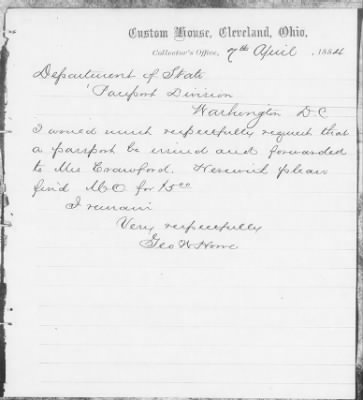 Custom House, Cleveland, Ohio.
Collector's Office, 7th April, 1884
Department of State
Passport Division
Washington D C
I would most respectfully request that
a passport be issued and forwarded
to Mrs Crawford. Herewith please
find M.O for $5.00
I remain
Very respectfully
Geo W Howe